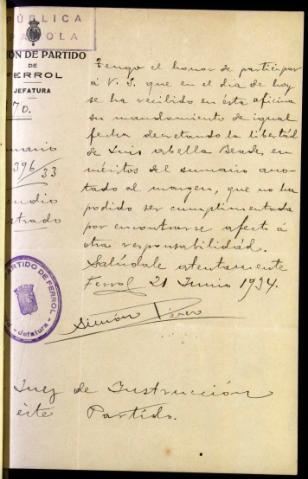 PÚBLICA
AÑOLA
IÓN DE PARTIDO
DE
FERROL
JEFATURA
70.
396
33
Tengo el honor de participar
á V. S. que en el dia de hoy
se ha recibido en ésta oficina
su mandamiento de igual
fecha decretando la libertad
de Luis Abella en
méritos del sumario ano-
tado al margen, que no ha
podido ser cumplimentada
por encontrarse afecto á
otra responsabilidad.
Salúdale atentamente
Ferrol 21 Junio 1934.
PARTIDO DE FERROL
Jefatura
Juez de Instrucción
éste Partido.